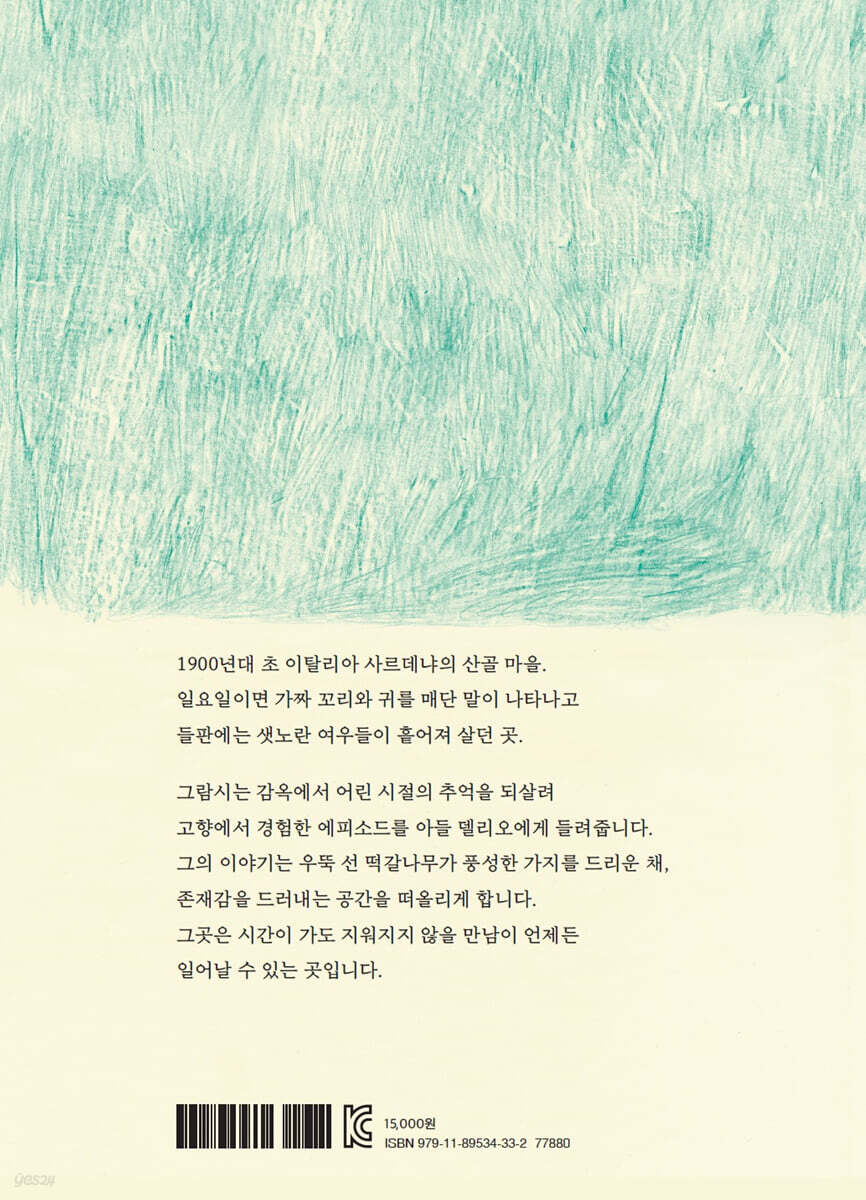 1900년대 초 이탈리아 사르데냐의 산골 마을.
일요일이면 가짜 꼬리와 귀를 매단 말이 나타나고
들판에는 샛노란 여우들이 흩어져 살던 곳.
그람시는 감옥에서 어린 시절의 추억을 되살려
고향에서 경험한 에피소드를 아들 델리오에게 들려줍니다.
그의 이야기는 우뚝 선 떡갈나무가 풍성한 가지를 드리운 채,
존재감을 드러내는 공간을 떠올리게 합니다.
그곳은 시간이 가도 지워지지 않을 만남이 언제든
일어날 수 있는 곳입니다.
15,000원
ISBN 979-11-89534-33-2 77880
yes24